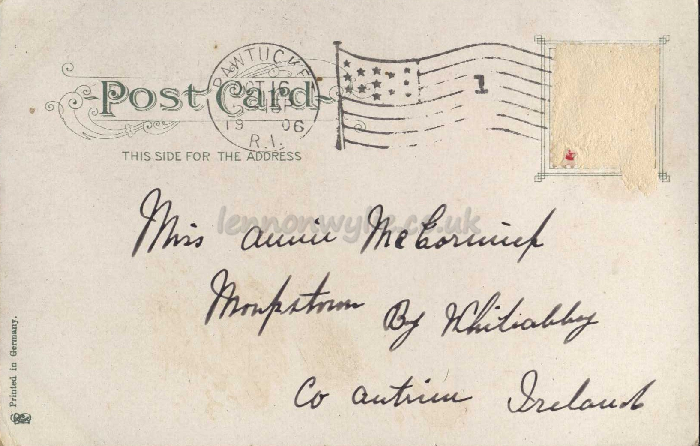 PAWTUCKET
OCT 16
19 06
R.I.
1
Post Card
THIS SIDE FOR THE ADDRESS
lennonwylie.co.uk
Miss Annie McCormick
Monkstown By Whiteabby
Co Antrim Ireland
Printed in Germany.